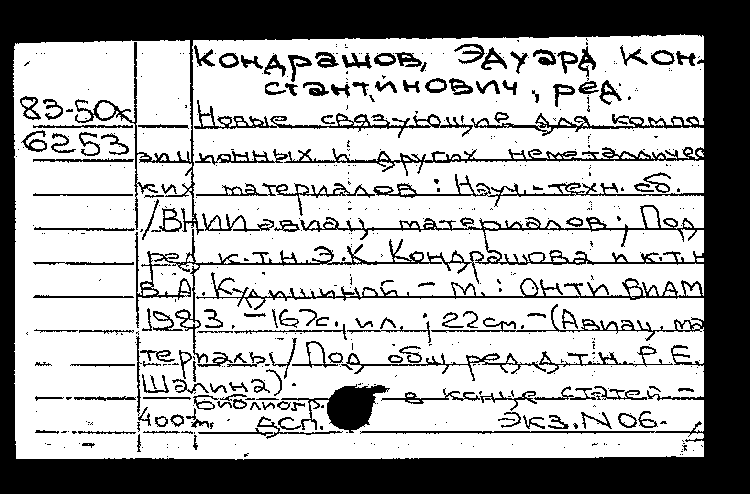 Кондрашов, Эдуард Кон-
стантинович, ред.
83-50х
6253
Новые связующие для компо
зиционных и других неметалличес
ких материалов : Науч.-техн. сб.
/ВНИИ авиац. материалов ; Под
ред к.т.н. Э.К. Кондрашова и к.т.н
В.А. Кудишиной. - М. : ОНТИ ВИАМ
1983. - 167с., ил. ; 22см. - (Авиац. ма
териалы / Под общ. ред д.т.н. Р.Е.
Шалина).
Библиогр. в конце статей -
400т. ДСП. Экз. N 06.